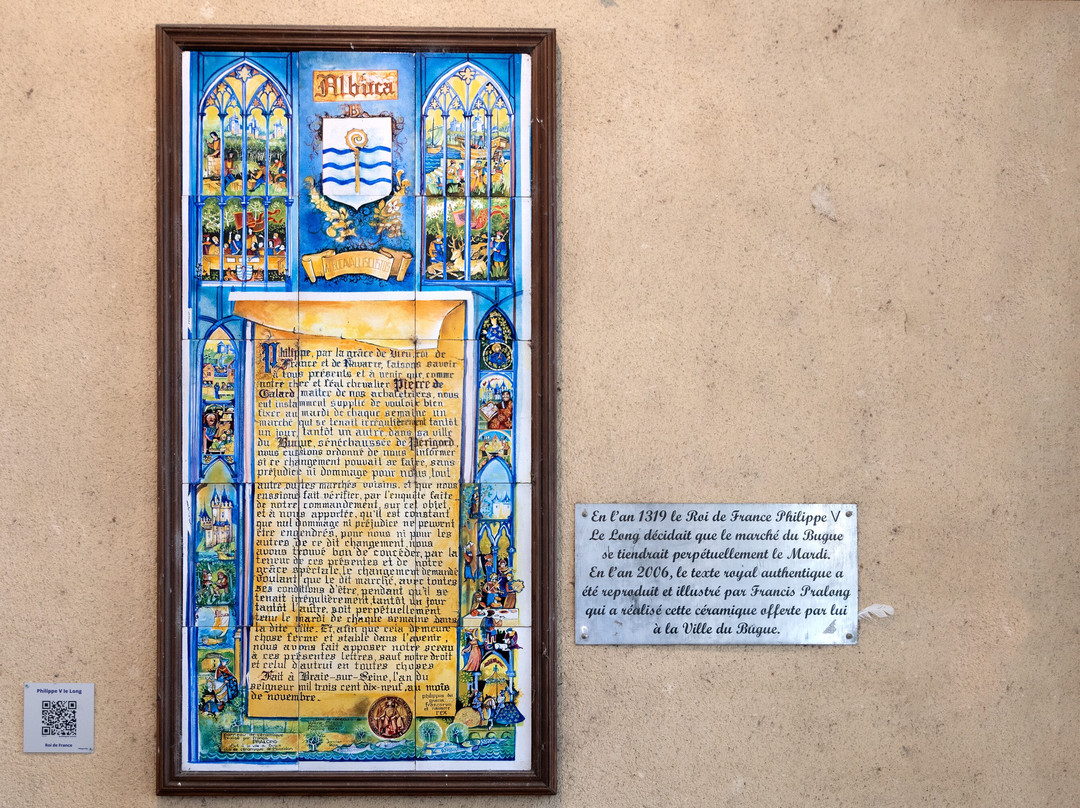 Albuca
Philippe, par la grâce de Dieu, roi de
France et de Navarre, faisons savoir
à tous présents et à venir que, comme
notre cher et féal chevalier Pierre de
Galard maître de nos arbalétriers, nous
eut instamment supplié de vouloir bien
fixer au mardi de chaque semaine un
marché qui se tenait irrégulièrement tantôt
un jour, tantôt un autre dans sa ville
du Bugue, sénéchaussée de Périgord,
nous eussions ordonné de nous informer
si ce changement pouvait se faire, sans
préjudice ni dommage pour nous, tout
autre ou les marchés voisins, et que nous
eussions fait vérifier, par l'enquête faite
de notre commandement, sur cet objet,
et à nous apportée, qu'il est constant
que nul dommage ni préjudice ne peuvent
être engendrés, pour nous ni pour les
autres, de ce dit changement, nous
avons trouvé bon de concéder, par la
teneur de ces présentes et de notre
grâce spéciale, le changement demandé
voulant que le dit marché, avec toutes
ses conditions d'être, pendant qu'il se
tenait irrégulièrement tantôt un jour
tantôt l'autre, soit perpétuellement
tenu le mardi de chaque semaine dans
la dite ville. Et afin que cela demeure
chose ferme et stable dans l'avenir,
nous avons fait apposer notre sceau
à ces présentes lettres, sauf notre droit
et celui d'autrui en toutes choses
Fait à Braie-sur-Seine, l'an du
seigneur mil trois cent dix-neuf, au mois
de novembre.
philippus dei
gracia
francorum
et navarre
rex
PRALONG
En l'an 1319 le Roi de France Philippe V
Le Long décidait que le marché du Bugue
se tiendrait perpétuellement le Mardi.
En l'an 2006, le texte royal authentique a
été reproduit et illustré par Francis Pralong
qui a réalisé cette céramique offerte par lui
à la Ville du Bugue.
Philippe V le Long
Roi de France